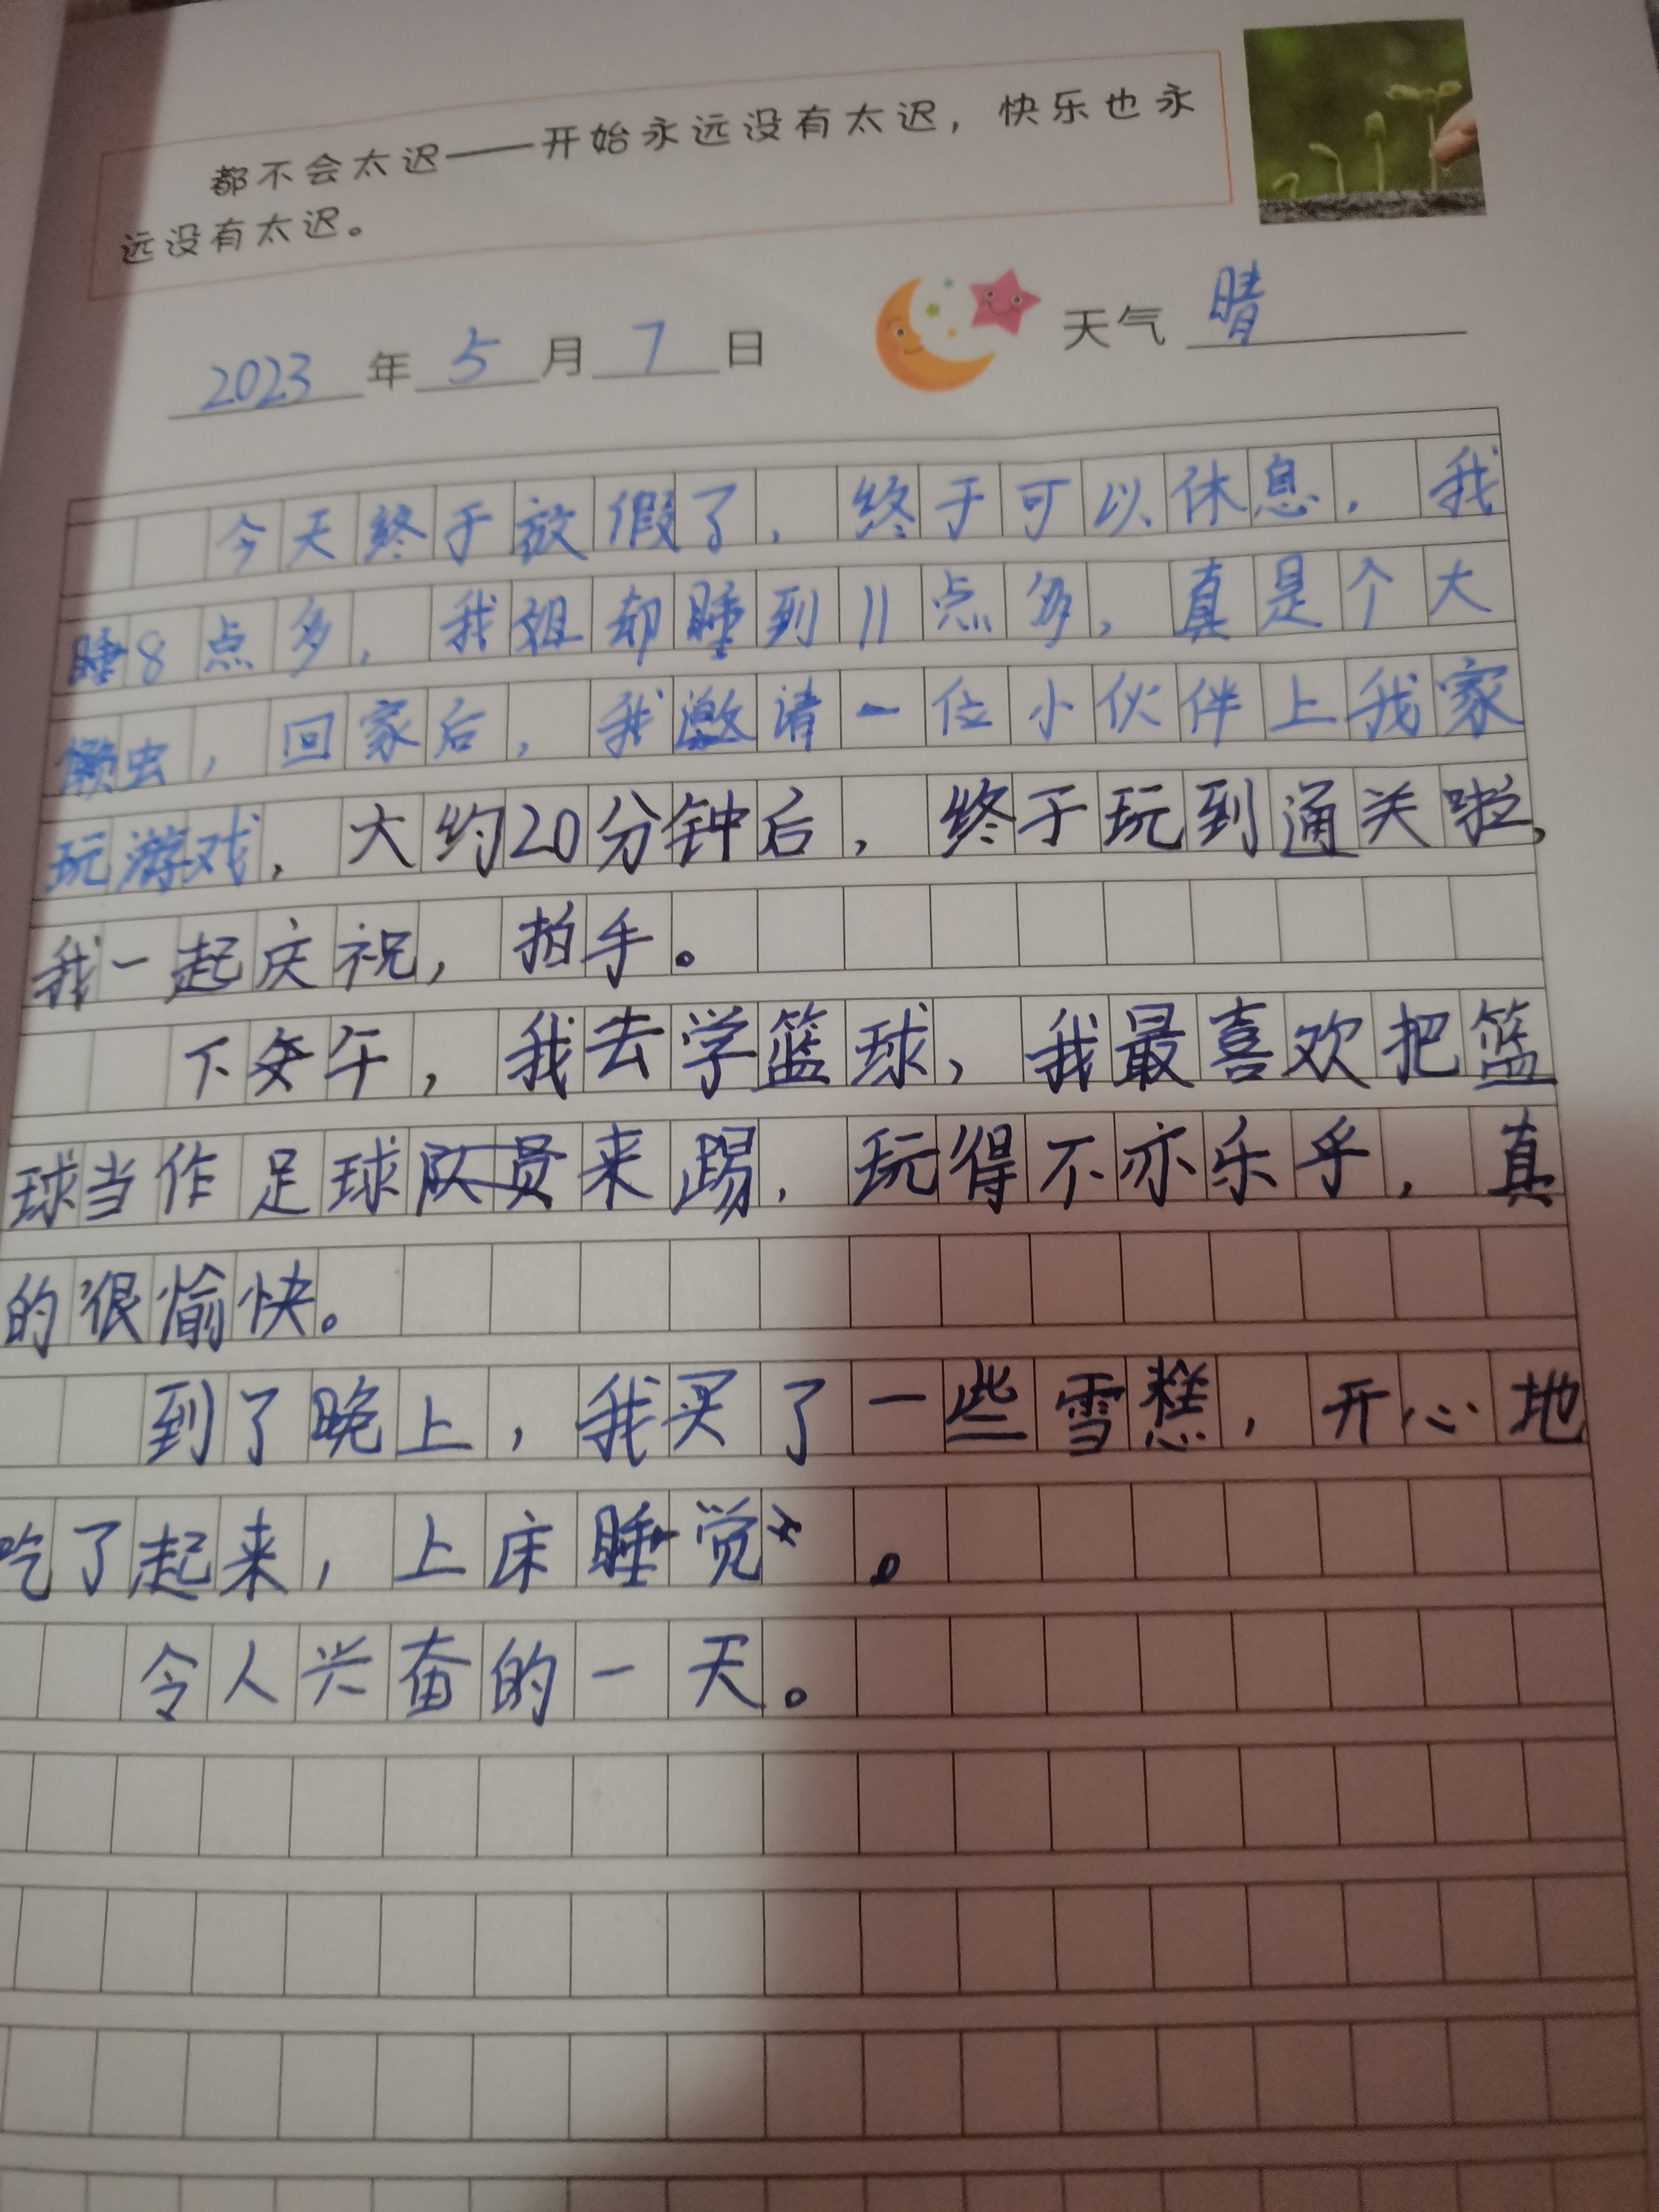 都不会太迟——开始永远没有太迟，快乐也永
远没有太迟。
2023年5月7日 天气 晴
今天终于放假了，终于可以休息，我
睡8点多，我姐却睡到11点多，真是个大
懒虫，回家后，我邀请一位小伙伴上我家
玩游戏，大约20分钟后，终于玩到通关啦，
我一起庆祝，拍手。
下午，我去学篮球，我最喜欢把篮
球当作足球来踢，玩得不亦乐乎，真
的很愉快。
到了晚上，我买了一些雪糕，开心地
吃了起来，上床睡觉。
令人兴奋的一天。